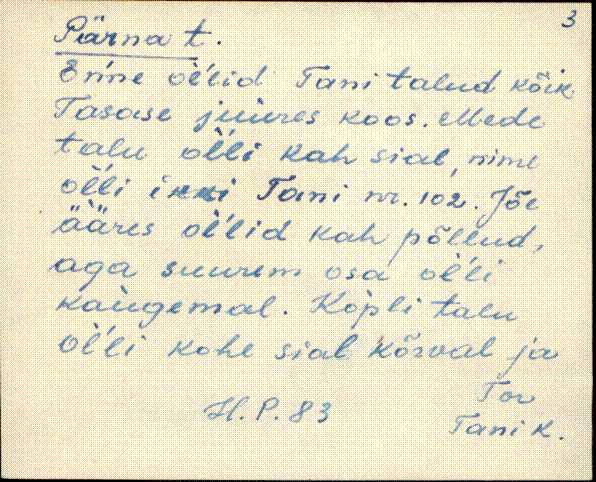 3
Pärna t.
Enne ol'lid Tani talud kõik
Tasase juures koos. Mede
talu ol'li kah sial, nime
ol'li ikki Tani nr. 102. Jõe
ääres ol'lid kah põllud,
aga suurem osa ol'li
kaugemal. Kopli talu
ol'li kohe sial kõrval ja
H. P. 83
Tor
Tani k.